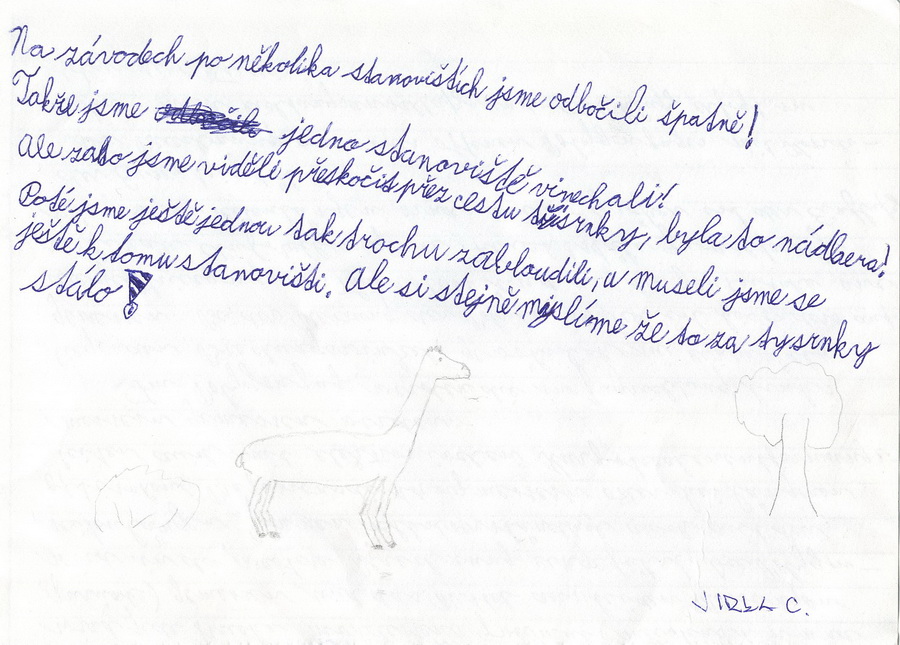 Na závodech po několika stanovištích jsme odbočili špatně!
Takže jsme jedno stanoviště vinechali!
Ale zato jsme viděli přeskočit přez cestu tysrnky, byla to nádhera!
Poté jsme ještě jednou tak trochu zabloudili, a museli jsme se
ještě k tomu stanovišti. Ale si stejně myslíme že to za tysrnky
stálo!
JIRKA C.